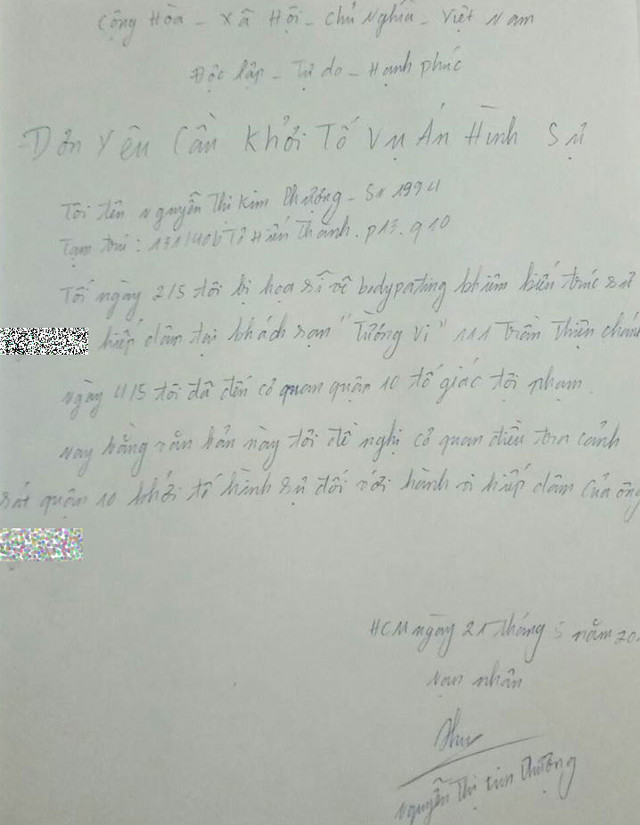 Cộng Hòa - Xã Hội - Chủ Nghĩa - Việt Nam
Độc lập - Tự do - Hạnh phúc
Đơn Yêu Cầu Khởi Tố Vụ Án Hình Sự
Tôi tên Nguyễn Thị Kim Phượng - SN 1994
Tạm trú: 131/40b Tô Hiến Thành. p13. q10
Tối ngày 2/5 tôi bị họa sĩ vẽ bodypating kiêm kiến trúc sư
hiếp dâm tại khách sạn "Tường Vi" 111 Trần Thiện Chánh
ngày 4/5 tôi đã đến cơ quan quận 10 tố giác tội phạm.
nay bằng văn bản này tôi đề nghị cơ quan điều tra cảnh
sát quận 10 khởi tố hình sự đối với hành vi hiếp dâm của ông
HCM ngày 21 tháng 5 năm 20
nạn nhân
Nguyễn Thị Kim Phượng